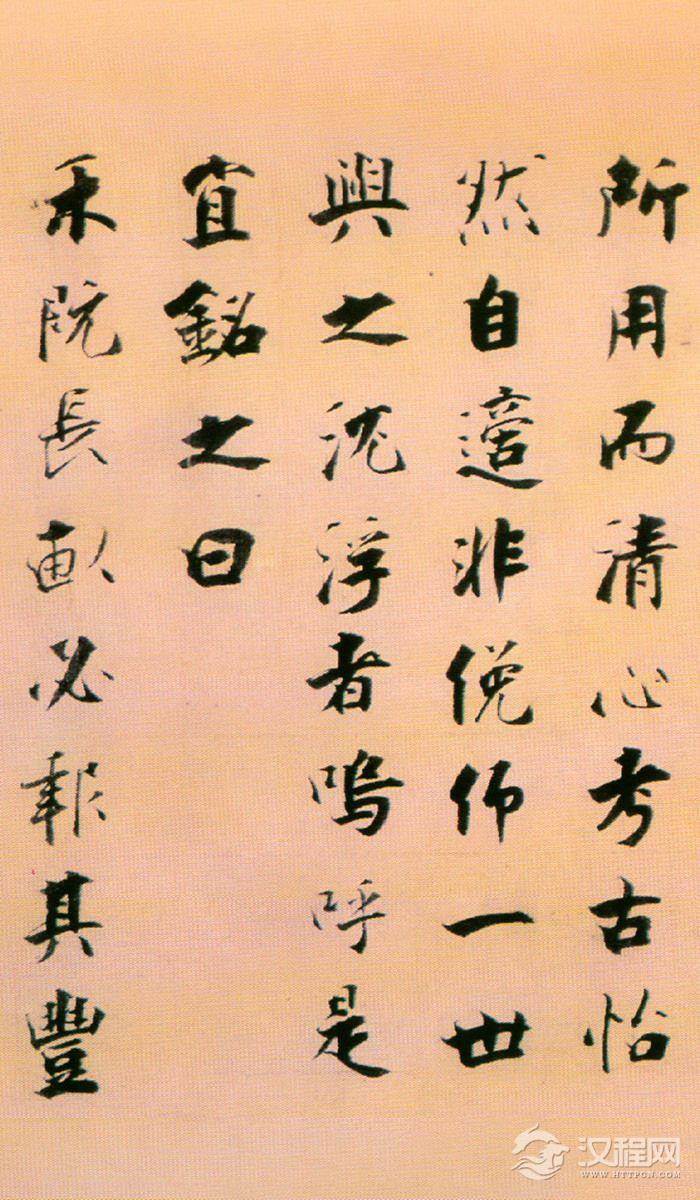 所用而清心考古怡
然自適非俛仰一世
與之沈浮者嗚呼是
宜銘之曰
禾阮長畝必報其豐
汉程网
WWW.HTTPCN.COM